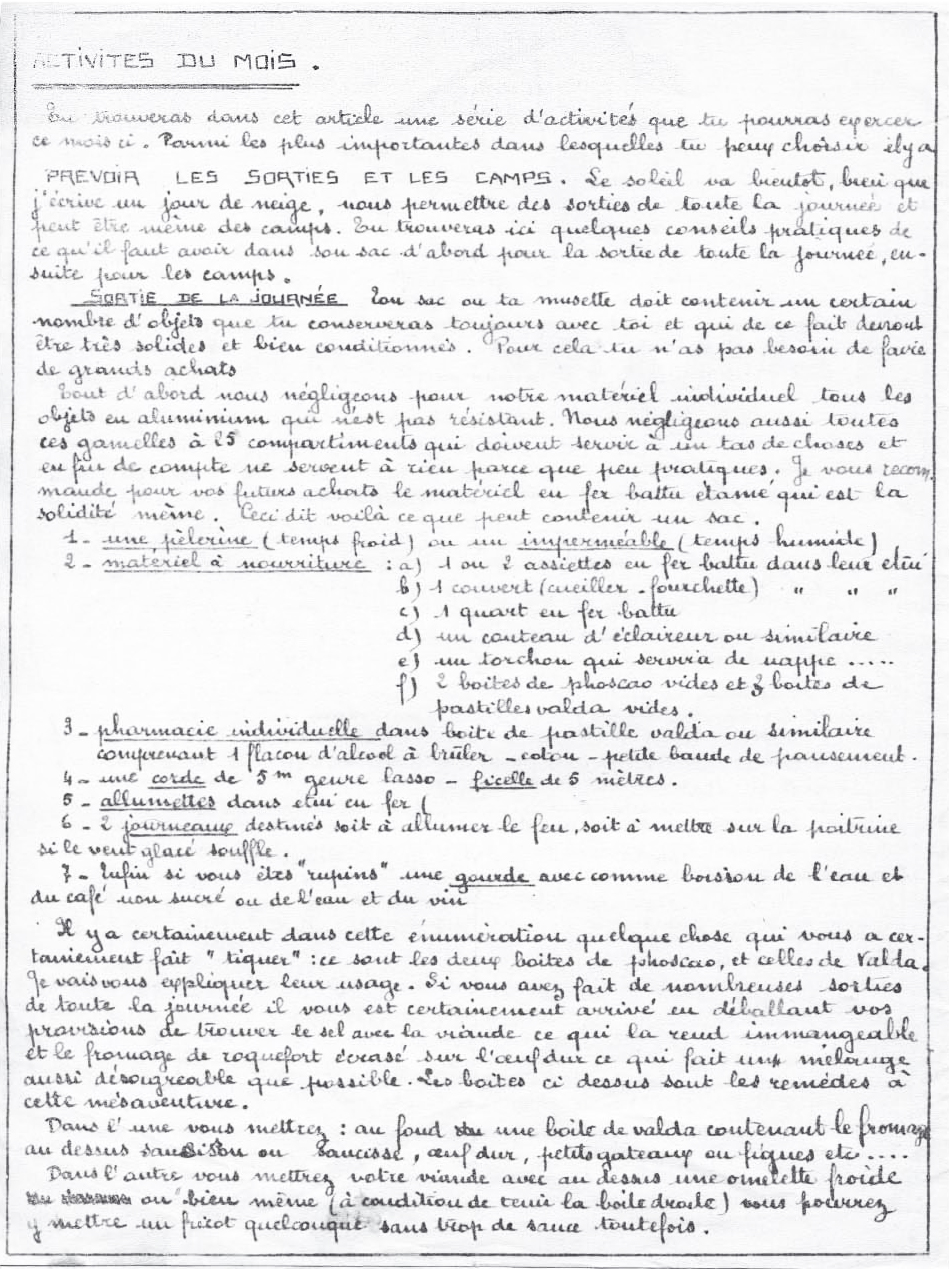 ACTIVITES DU MOIS .
Tu trouveras dans cet article une série d'activités que tu pourras exercer
ce mois ci . Parmi les plus importantes dans lesquelles tu peux choisir il y a
PREVOIR LES SORTIES ET LES CAMPS . Le soleil va bientot, bien que
j'écrive un jour de neige, nous permettre des sorties de toute la journée et
peut être même des camps. Tu trouveras ici quelques conseils pratiques de
ce qu'il faut avoir dans son sac d'abord pour la sortie de toute la journée, en-
suite pour les camps .
SORTIE DE LA JOURNÉE Ton sac ou ta musette doit contenir un certain
nombre d'objets que tu conserveras toujours avec toi et qui de ce fait devront
être très solides et bien conditionnés . Pour cela tu n'as pas besoin de faire
de grands achats
Tout d'abord nous négligeons pour notre matériel individuel tous les
objets en aluminium qui n'est pas résistant. Nous négligeons aussi toutes
ces gamelles à 25 compartiments qui doivent servir à un tas de choses et
en fin de compte ne servent à rien parce que peu pratiques . Je vous recom
mande pour vos futurs achats le matériel en fer battu étamé qui est la
solidité même . Ceci dit voilà ce que peut contenir un sac .
1 - une pèlerine ( temps froid ) ou un imperméable ( temps humide )
2 - matériel à nourriture : a) 1 ou 2 assiettes en fer battu dans leur étui
b) 1 couvert (cueiller - fourchette) " " "
c) 1 quart en fer battu
d) un couteau d'éclaireur ou similaire
e) un torchon qui servira de nappe .....
f) 2 boites de phoscao vides et 3 boites de
pastilles valda vides .
3 - pharmacie individuelle dans boite de pastille valda ou similaire
comprenant 1 flacon d'alcool à brûler - coton - petite bande de pansement .
4 - une corde de 5 m genre lasso - ficelle de 5 mètres .
5 - allumettes dans etui en fer (
6 - 2 journeaux destinés soit à allumer le feu, soit à mettre sur la poitrine
si le vent glacé souffle .
7 - Enfin si vous êtes "rupins" une gourde avec comme boisson de l'eau et
du café non sucré ou de l'eau et du vin
Il y a certainement dans cette énumération quelque chose qui vous a cer-
tainement fait " tiquer" : ce sont les deux boites de phoscao, et celles de Valda.
Je vais vous expliquer leur usage . Si vous avez fait de nombreuses sorties
de toute la journée il vous est certainement arrivé en déballant vos
provisions de trouver le sel avec la viande ce qui la rend immangeable
et le fromage de roquefort écrasé sur l'œuf dur ce qui fait un mélange
aussi désagreable que possible . Les boites ci dessus sont les remèdes à
cette mésaventure .
Dans l'une vous mettrez : au fond une boite de valda contenant le fromage
au dessus saucisson ou saucisse , œuf dur , petits gateaux ou figues etc ....
Dans l'autre vous mettrez votre viande avec au dessus une omelette froide
ou bien même (à condition de tenir la boite droite) vous pourrez
y mettre un fricot quelconque sans trop de sauce toutefois .